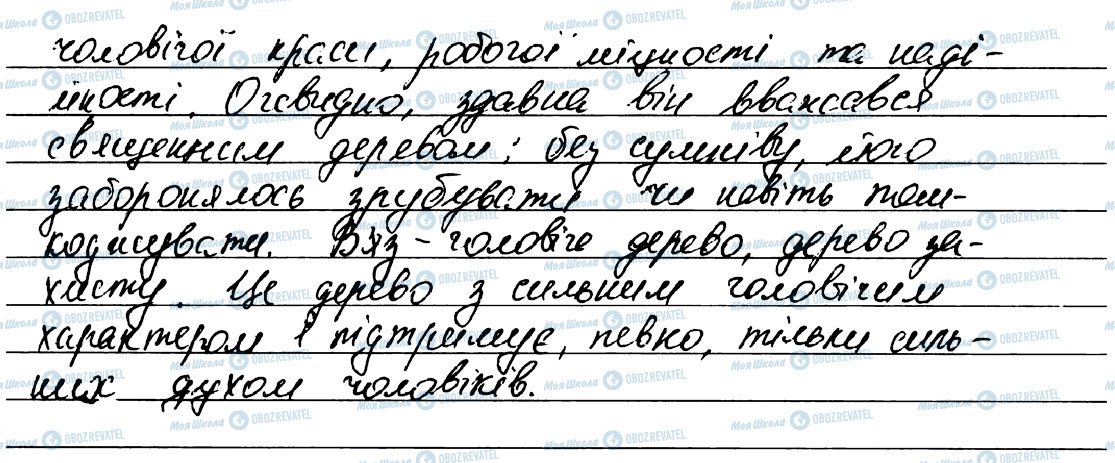 чоловічої краси, робочої міцності та наді-
йності. Очевидно, здавна він вважався
священним деревом; без сумніву, його
заборонялось зрубувати чи навіть пош-
коджувати. В'яз - чоловіче дерево, дерево за-
хисту. Це дерево з сильним чоловічим
характером і підтримує, певно, тільки силь-
них духом чоловіків.